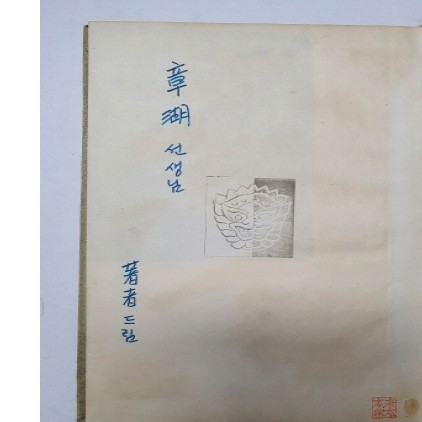 章湖 선생님
著者 드림